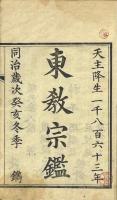 天主降生一千八百六十三年
東教宗鑑
同治歲次癸亥冬季 鐫